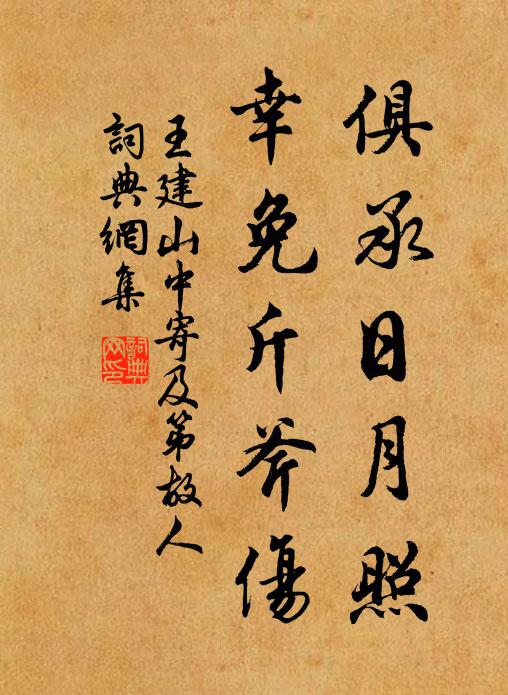 俱承日月照
幸免斤斧傷
王建山中寄及第故人
詞典網集
詞典網印